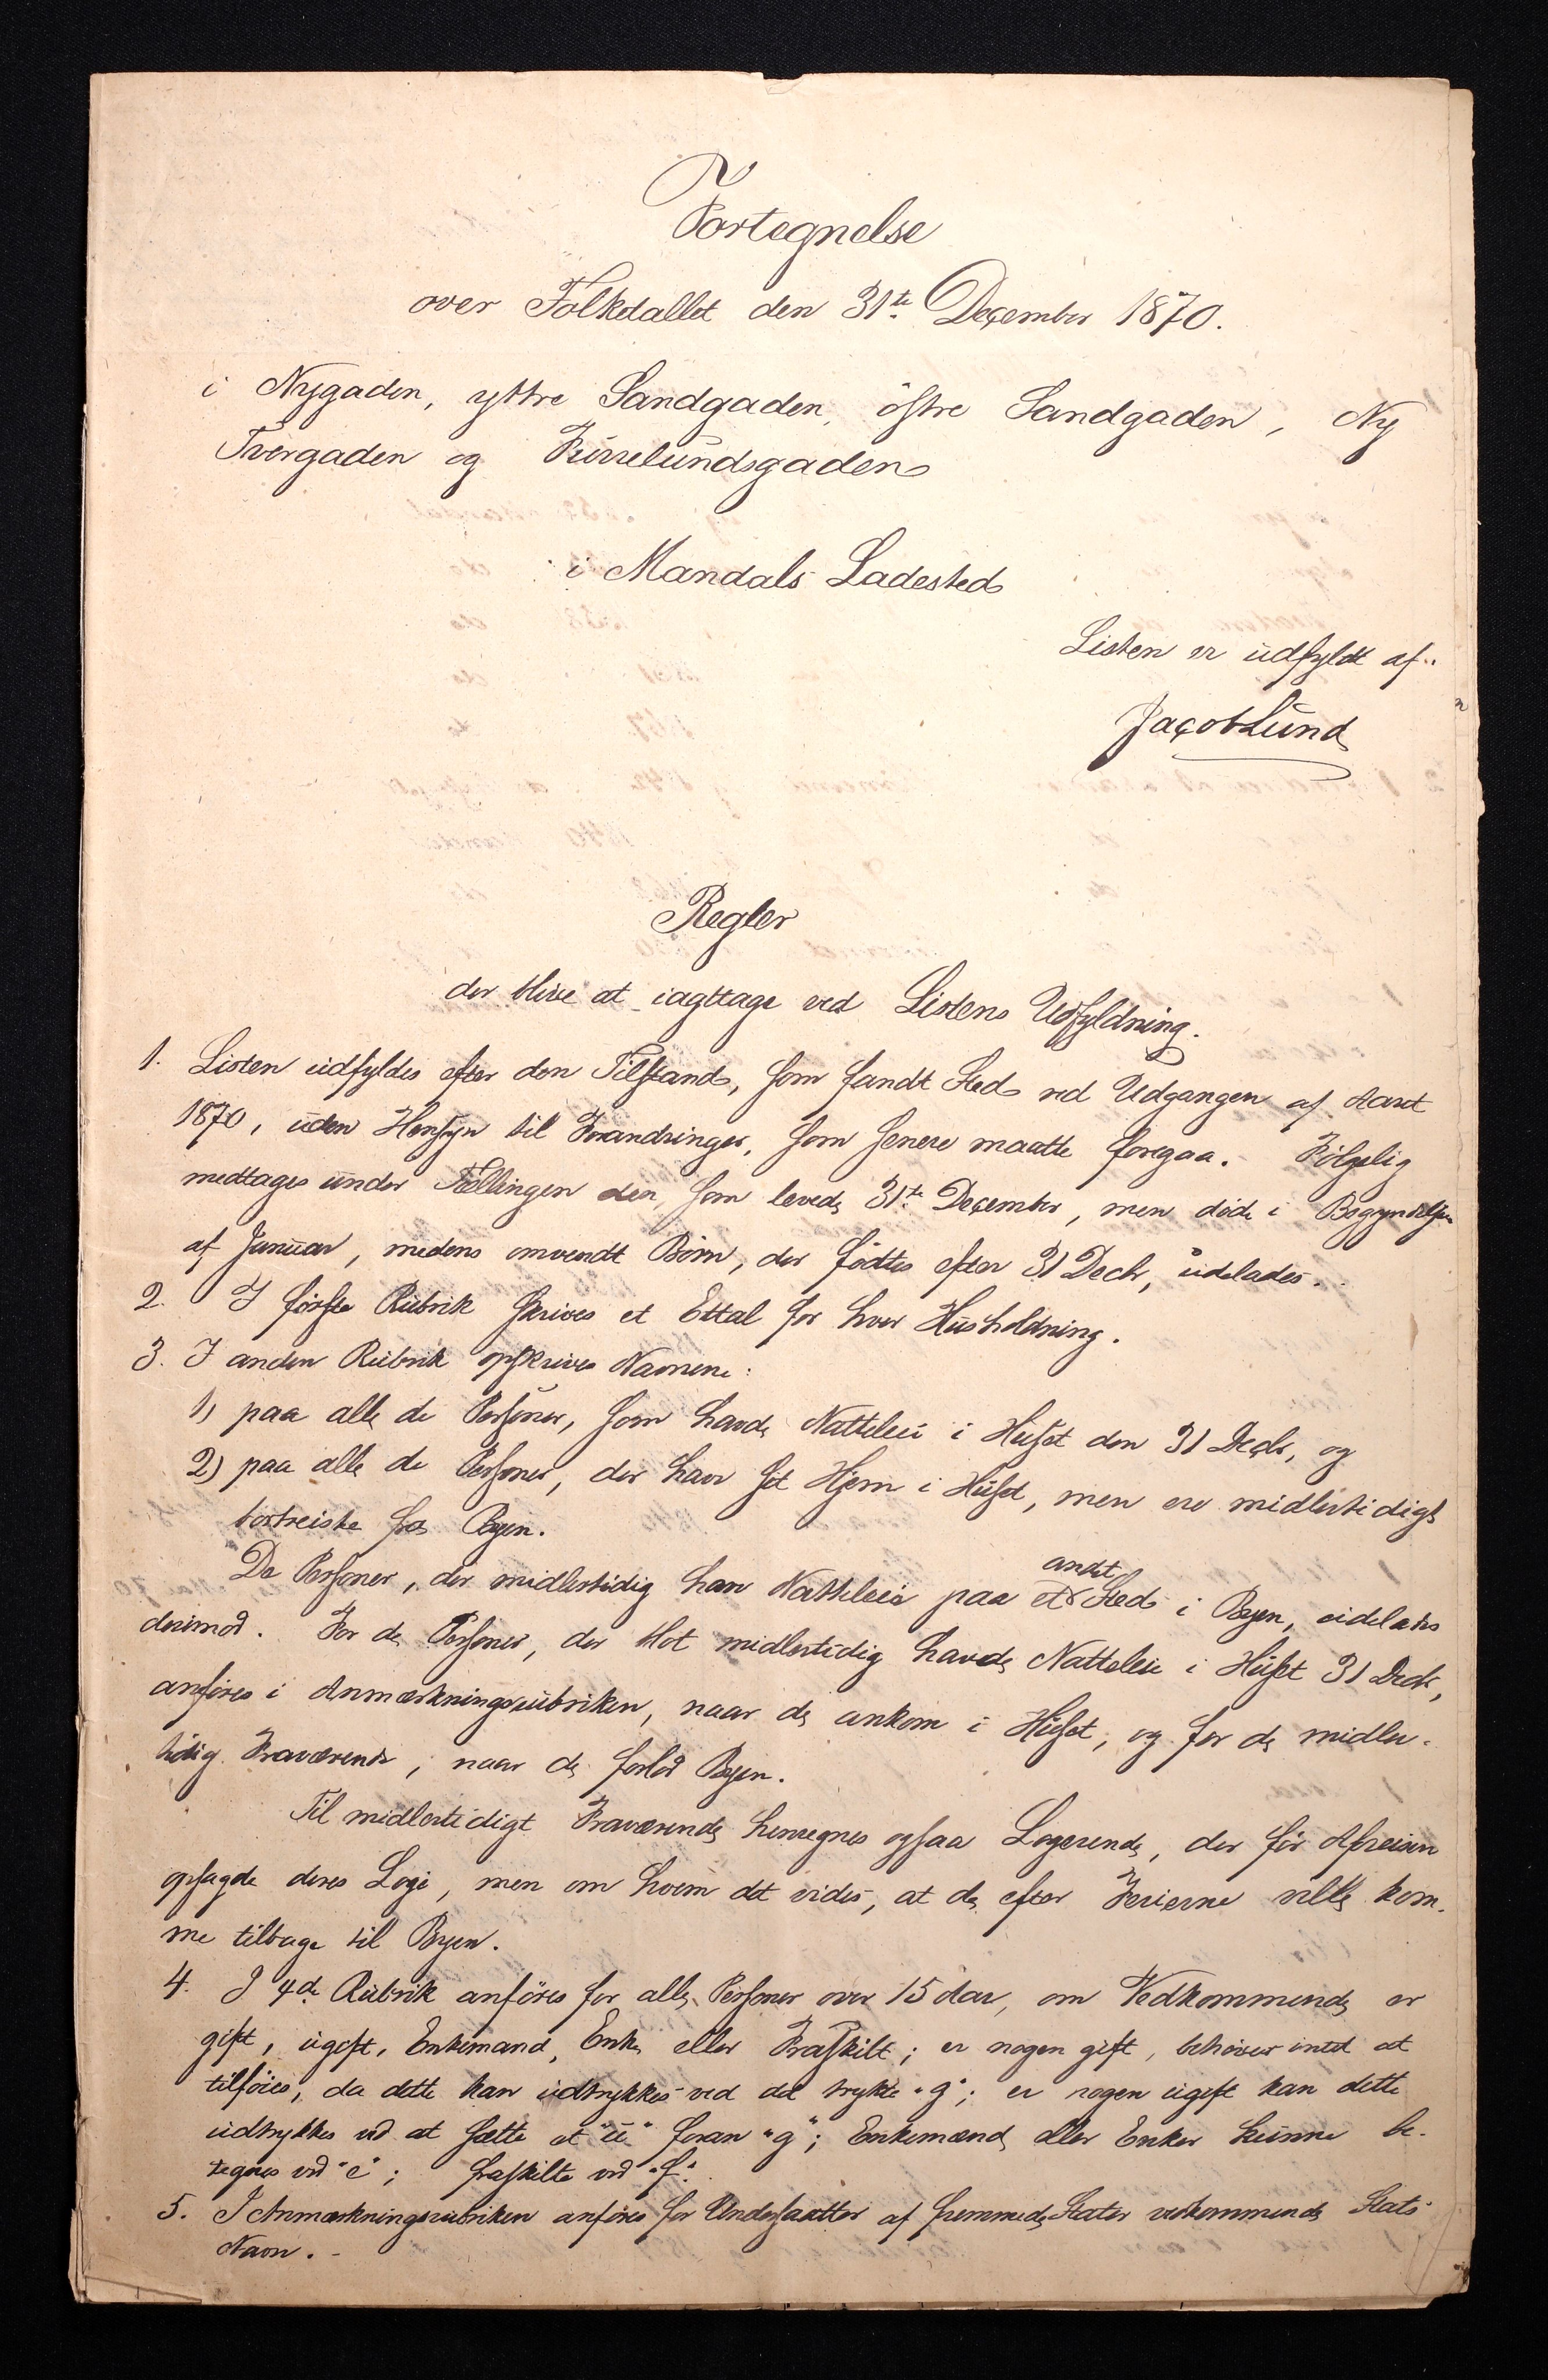 Fortegnelse
over Folketallet den 31te December 1870.
i Nygaden, yttre Sandgaden, östre Sandgaden, Ny
Tvergaden og Furrelundsgaden
i Mandals Ladested
Listen er udfyldt af:
Jacob Lund
Regler
der blive at iagttage ved Listens Udfyldning.
1. Listen udfyldes efter den Tilstand, som fandt Sted ved Udgangen af Aaret
1870, uden Hensyn til Forandringer, som senere maatte foregaa. Fölgelig
medtages under Tællingen den, som levede 31te December, men döde i Begyndelsen
af Januar, medens omvendt Börn, der födtes efter 31 Decbr, udelades.
2. I förste Rubrik skrives et Ettal for hver Husholdning.
3. I anden Rubrik opskrives Navnene:
1) paa alle de Personer, som havde Natteleie i Huset den 31 Decbr, og
2) paa alle de Personer, der have sit Hjem i Huset, men ere midlertidigt
bortreiste fra Byen.
De Personer, der midlertidig har Natteleie paa et andet Sted i Byen, udelades
derimod. For de Personer, der blot midlertidig havde Natteleie i Huset 31 Decbr,
anföres i Anmærkningsrubriken, naar de ankom i Huset, og for de midler-
tidig Fraværende, naar de forlod Byen.
Til midlertidigt Fraværende henregnes ogsaa Logerende, der för Afreisen
opsagde deres Logi, men om hvem det vides, at de efter Ferierne ville kom-
me tilbage til Byen.
4. I 4de Rubrik anföres for alle Personer over 15 Aar, om Vedkommende er
gift, ugift, Enkemand, Enke eller Fraskilt; er nogen gift, behöver intet at
tilföies, da dette kan udtrykkes ved det trykte "g"; er nogen ugift kan dette
udtrykkes ved at sætte et "u" foran "g"; Enkemænd eller Enker kunne be-
tegnes ved "e"; fraskilte ved "f."
5. I Anmærkningsrubriken anföres for Undersaatter af fremmede Stater vedkommende Stats
Navn.